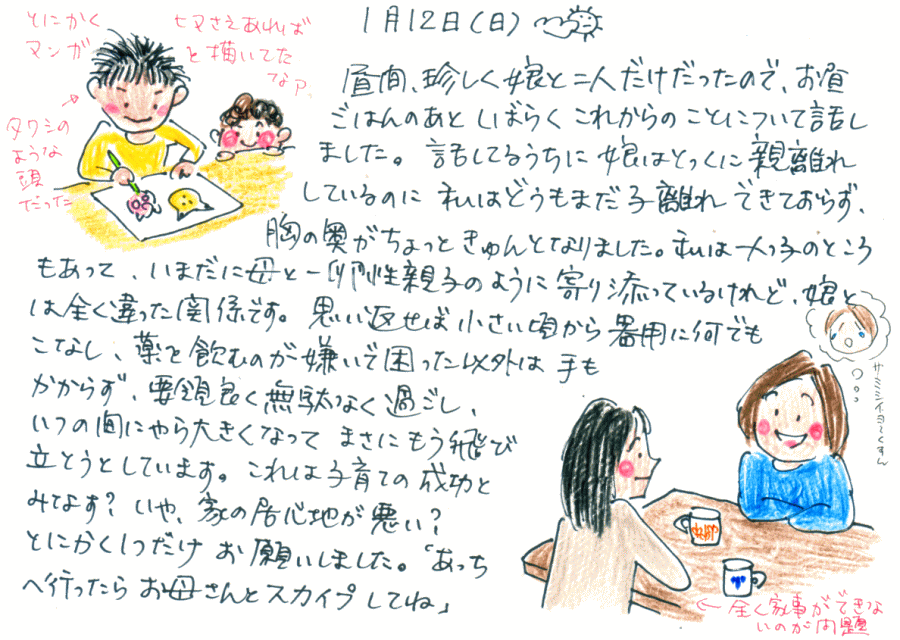 1月12日(日)
とにかく
マンガ
ヒマさえあれば
と描いてた
なア。
タワシの
ような
頭
だった
昼間、珍しく娘と二人だけだったので、お昼
ごはんのあと しばらく これからの ことについて話し
ました。 話してるうちに 娘はとっくに 親離れ
しているのに 私はどうもまだ子離れ できておらず、
胸の奥がちょっと きゅんとなりました。私は一人っ子のところ
もあって、いまだに母と一卵性親子のように寄り添っているけれど、娘と
は全く違った関係です。 思い返せば 小さい頃から 器用に何でも
こなし、薬を飲むのが嫌いで困った以外は 手も
かからず、要領良く無駄なく過ごし、
いつの間にやら大きくなって まさにもう飛び
立とうとしています。これは子育ての成功と
みなす? いや、家の居心地が悪い?
とにかく1つだけ お願いしました。「あっち
へ行ったら お母さんとスカイプ してね」
サミシイヨ〜くすん
←全く家事ができな
いのが問題